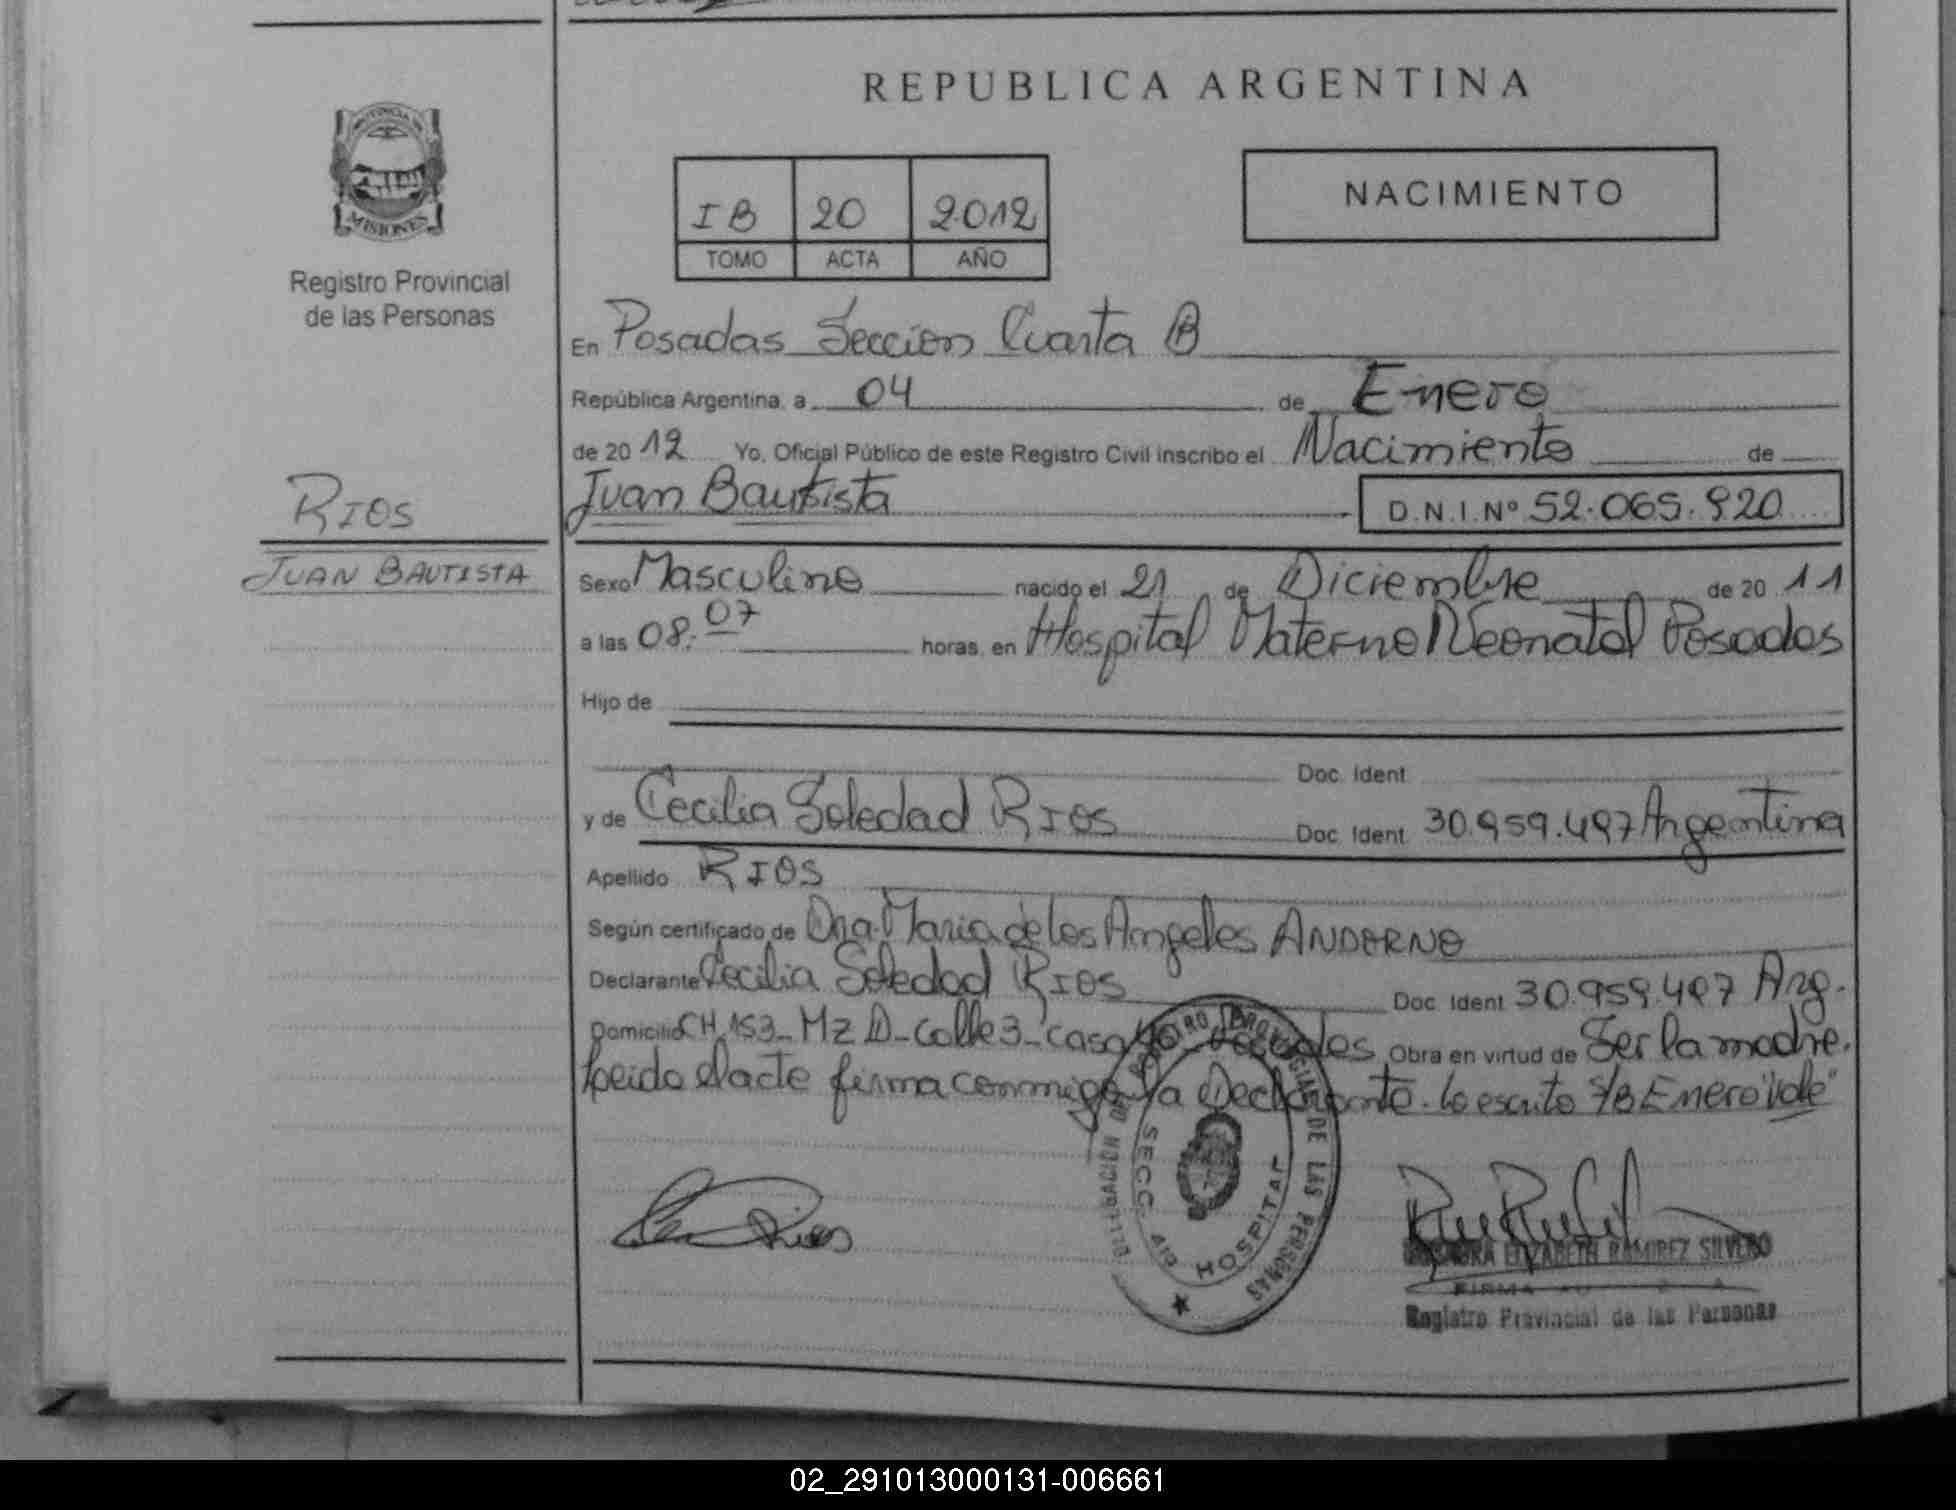 REPUBLICA ARGENTINA
MISIONES
Registro Provincial
de las Personas
IB 20 2012
TOMO ACTA AÑO
NACIMIENTO
En Posadas Seccion Cuarta B
República Argentina, a 04 de Enero
de 2012 Yo, Oficial Público de este Registro Civil inscribo el Nacimiento de
RIOS
Juan Bautista D.N.I.Nº 52.065.920
JUAN BAUTISTA
Sexo Masculino nacido el 21 de Diciembre de 2011
a las 08:07 horas, en Hospital Materno Neonatal Posadas
Hijo de
Doc. Ident.
y de Cecilia Soledad RIOS Doc. Ident. 30.959.497 Argentina
Apellido RIOS
Según certificado de Dra. Maria de los Angeles ANDORNO
Declarante Cecilia Soledad RIOS Doc. Ident. 30.959.497 Arg.
Domicilio CH.153-Mz D-Calle 3-casa Posadas Obra en virtud de Ser la madre.
Leido el acta firma conmigo la Declarante. lo escrito S/B Enero "vale"
DELEGACION DEL REGISTRO PROVINCIAL DE LAS PERSONAS
SECC. HOSPITAL
Rios
ELIZABETH RAMIREZ SILVERO
FIRMA
Registro Provincial de las Personas
02_291013000131-006661